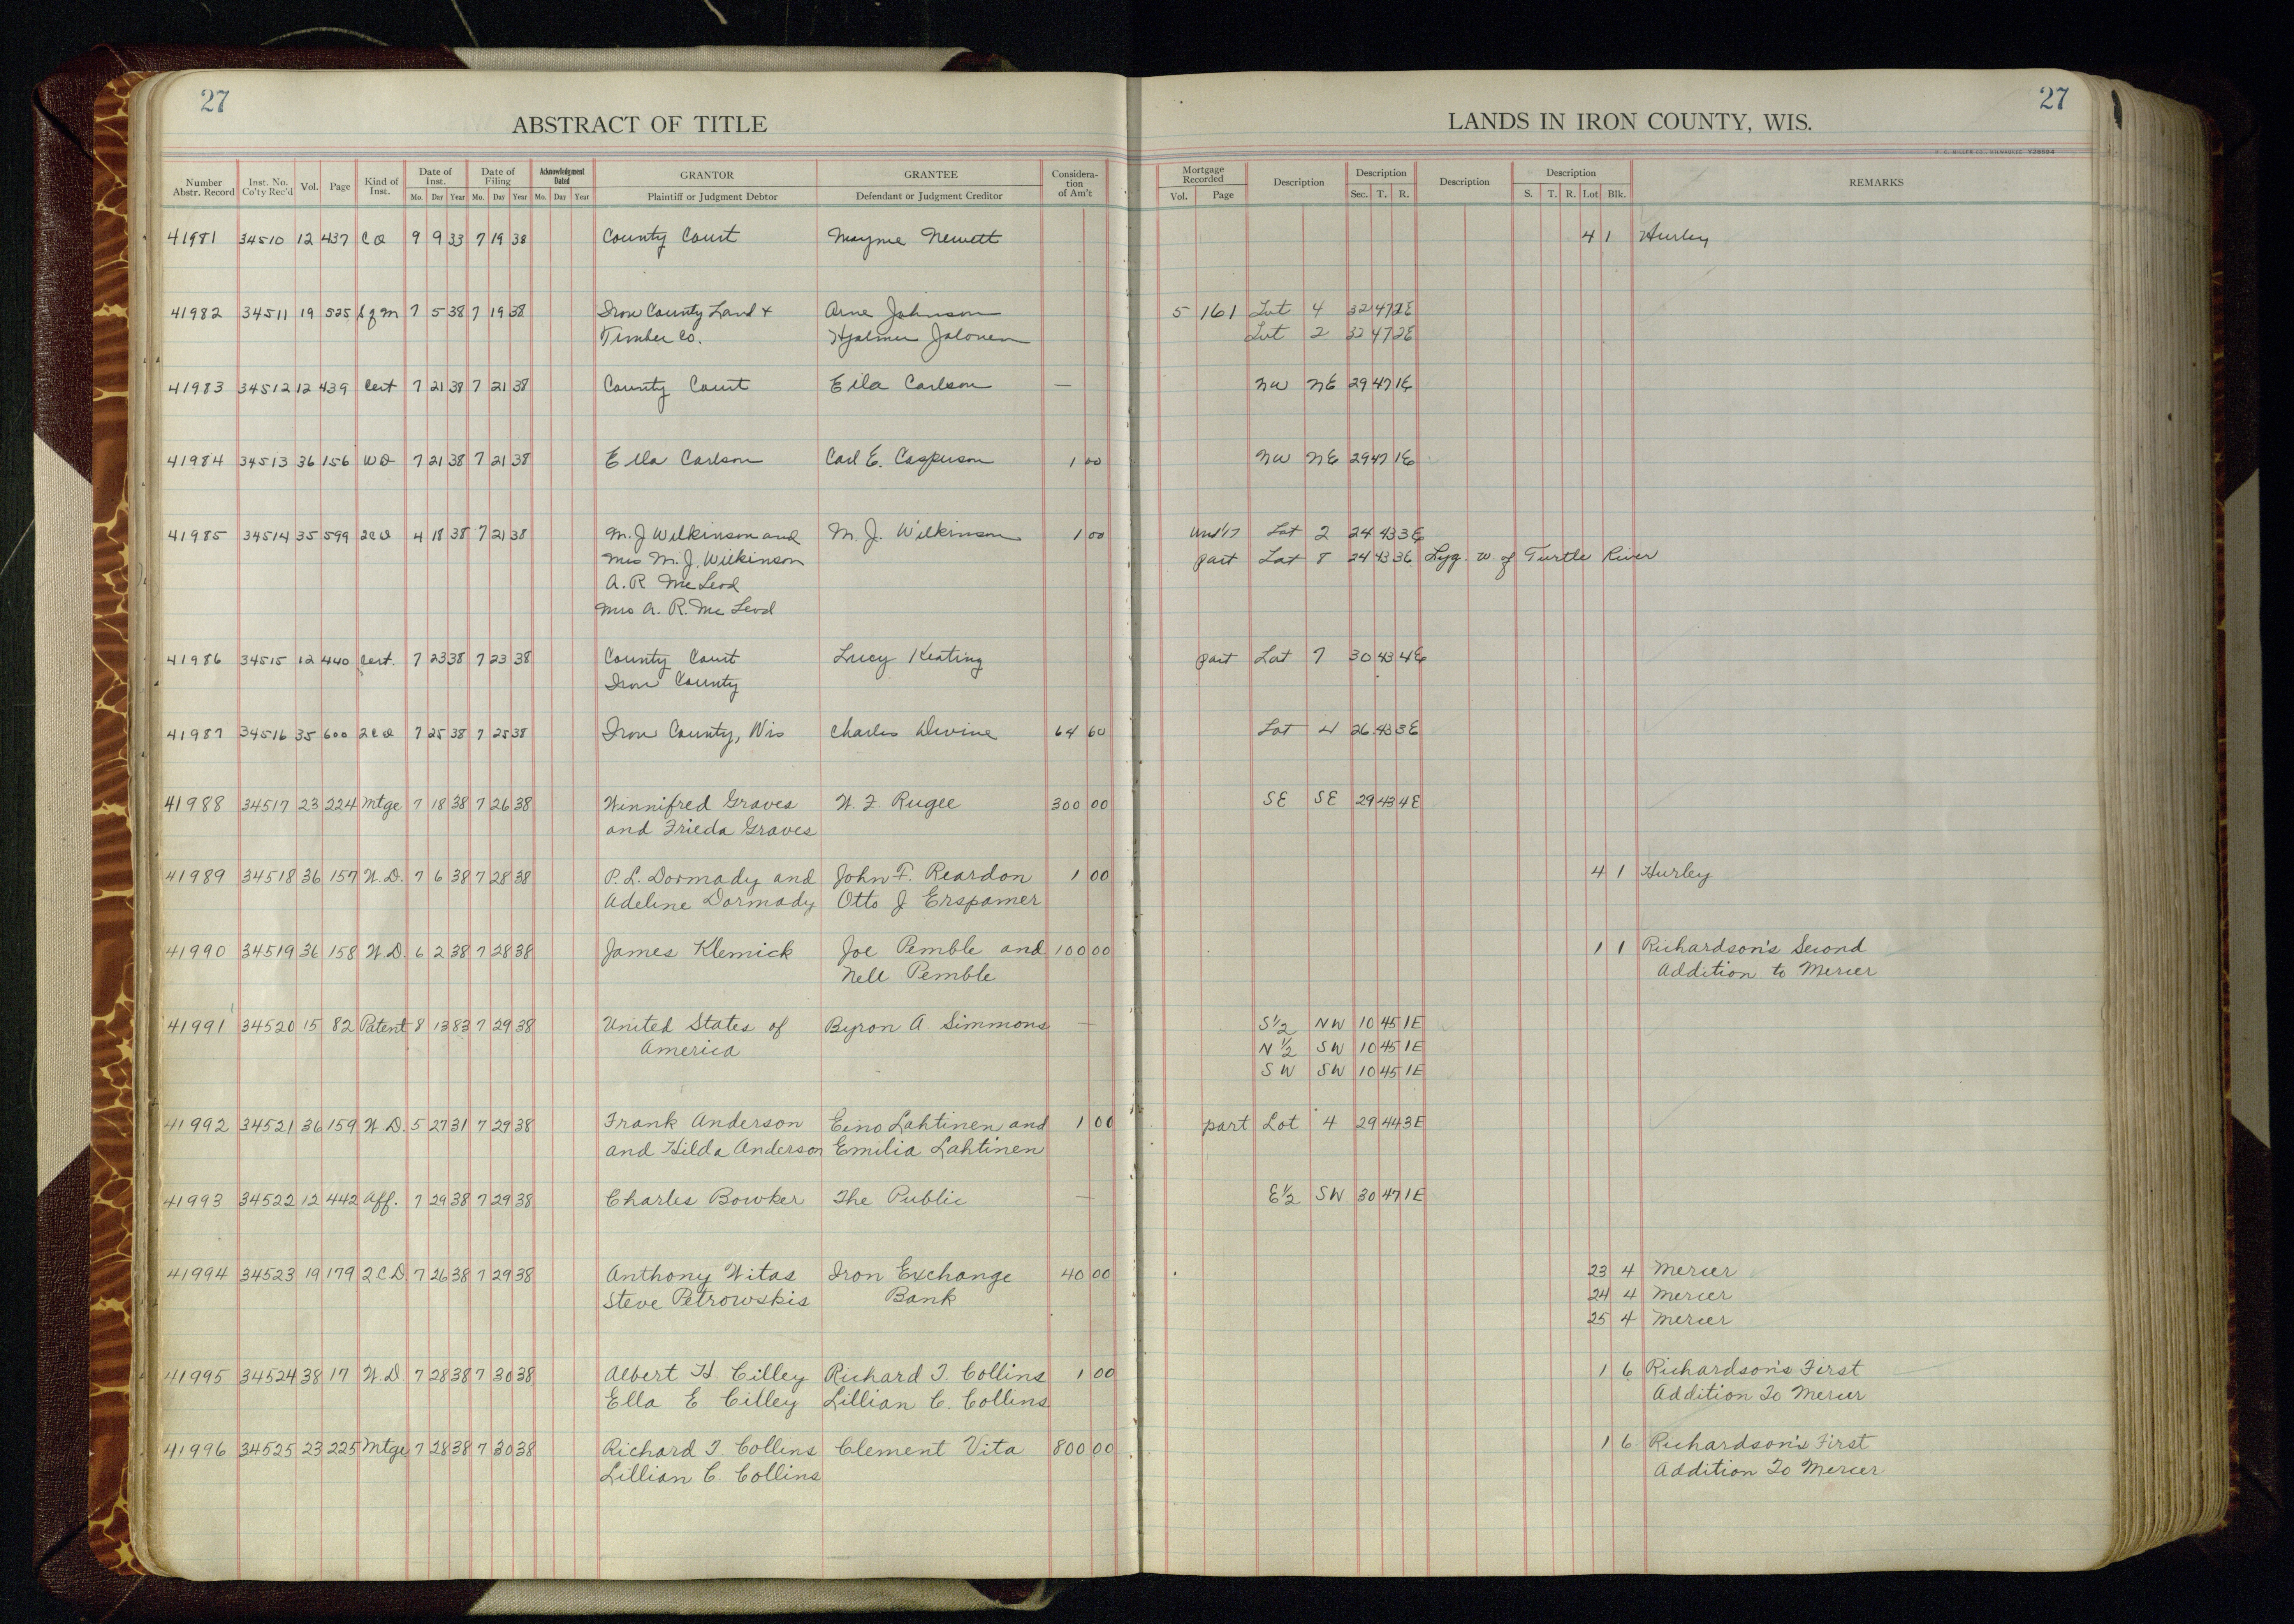 27
27
ABSTRACT OF TITLE
LANDS IN IRON COUNTY, WIS.
Number Abstr. Record | Inst. No. Co'ty Rec'd | Vol. | Page | Kind of Inst. | Date of Inst. Mo. Day Year | Date of Filing Mo. Day Year | Acknowledgment Dated Mo. Day Year | GRANTOR Plaintiff or Judgment Debtor | GRANTEE Defendant or Judgment Creditor | Consideration of Am't | Mortgage Recorded Vol. Page | Description | Description Sec. T. R. | Description | Description S. T. R. Lot Blk. | REMARKS
41981 34510 12 437 C D 9 9 33 7 19 38 County Court Mayme Newett 4 1 Hurley
41982 34511 19 525 7 5 38 7 19 38 Iron County Land + Arne Johnson 5 161 Lot 4 32 47 2E
Timber Co. Hjalmer Jalonen Lot 2 32 47 2E
41983 34512 12 439 Cert 7 21 38 7 21 38 County Court Ella Carlson — NW NE 29 47 1E
41984 34513 36 156 WD 7 21 38 7 21 38 Ella Carlson Carl E. Casperson 1 00 NW NE 29 47 1E
41985 34514 35 599 2CD 4 18 38 7 21 38 M. J Wilkinson and M. J. Wilkinson 1 00 Lot 2 24 43 3E
Mrs M. J. Wilkinson part Lot 8 24 43 3E Lyg. W. of Turtle River
A. R McLeod
Mrs A. R. McLeod
41986 34515 12 440 Cert. 7 23 38 7 23 38 County Court Lucy Keating part Lot 7 30 43 4E
Iron County
41987 34516 35 600 2CD 7 25 38 7 25 38 Iron County, Wis Charles Devine 64 60 Lot 4 26 43 3E
41988 34517 23 224 Mtge 7 18 38 7 26 38 Winnifred Graves W. F. Rugee 300 00 SE SE 29 43 4E
and Frieda Graves
41989 34518 36 157 W.D. 7 6 38 7 28 38 P. L. Dormady and John F. Reardon 1 00 4 1 Hurley
Adeline Dormady Otto J Erspamer
41990 34519 36 158 W.D. 6 2 38 7 28 38 James Klemick Joe Pemble and 100 00 1 1 Richardson's Second
Nell Pemble Addition to Mercer
41991 34520 15 82 Patent 8 13 83 7 29 38 United States of Byron A. Simmons — S½ NW 10 45 1E
America N½ SW 10 45 1E
SW SW 10 45 1E
41992 34521 36 159 W.D. 5 27 31 7 29 38 Frank Anderson Eino Lahtinen and 1 00 part Lot 4 29 44 3E
and Hilda Anderson Emilia Lahtinen
41993 34522 12 442 Aff. 7 29 38 7 29 38 Charles Bowker The Public — E½ SW 30 47 1E
41994 34523 19 179 2CD 7 26 38 7 29 38 Anthony Witas Iron Exchange 40 00 23 4 Mercer
Steve Petrowskis Bank 24 4 Mercer
25 4 Mercer
41995 34524 38 17 W.D. 7 28 38 7 30 38 Albert H Cilley Richard T. Collins 1 00 1 6 Richardson's First
Ella E Cilley Lillian C. Collins Addition To Mercer
41996 34525 23 225 Mtge 7 28 38 7 30 38 Richard T. Collins Clement Vita 800 00 1 6 Richardson's First
Lillian C. Collins Addition To Mercer